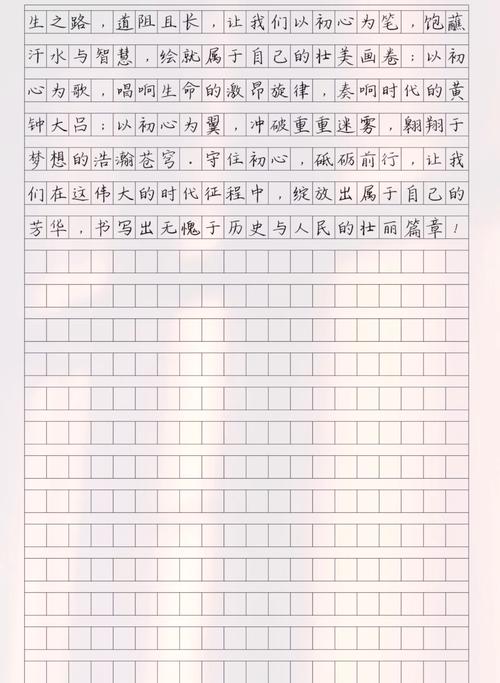 生之路，道阻且长，让我们以初心为笔，饱蘸
汗水与智慧，绘就属于自己的壮美画卷；以初
心为歌，唱响生命的激昂旋律，奏响时代的黄
钟大吕；以初心为翼，冲破重重迷雾，翱翔于
梦想的浩瀚苍穹．守住初心，砥砺前行，让我
们在这伟大的时代征程中，绽放出属于自己的
芳华，书写出无愧于历史与人民的壮丽篇章！